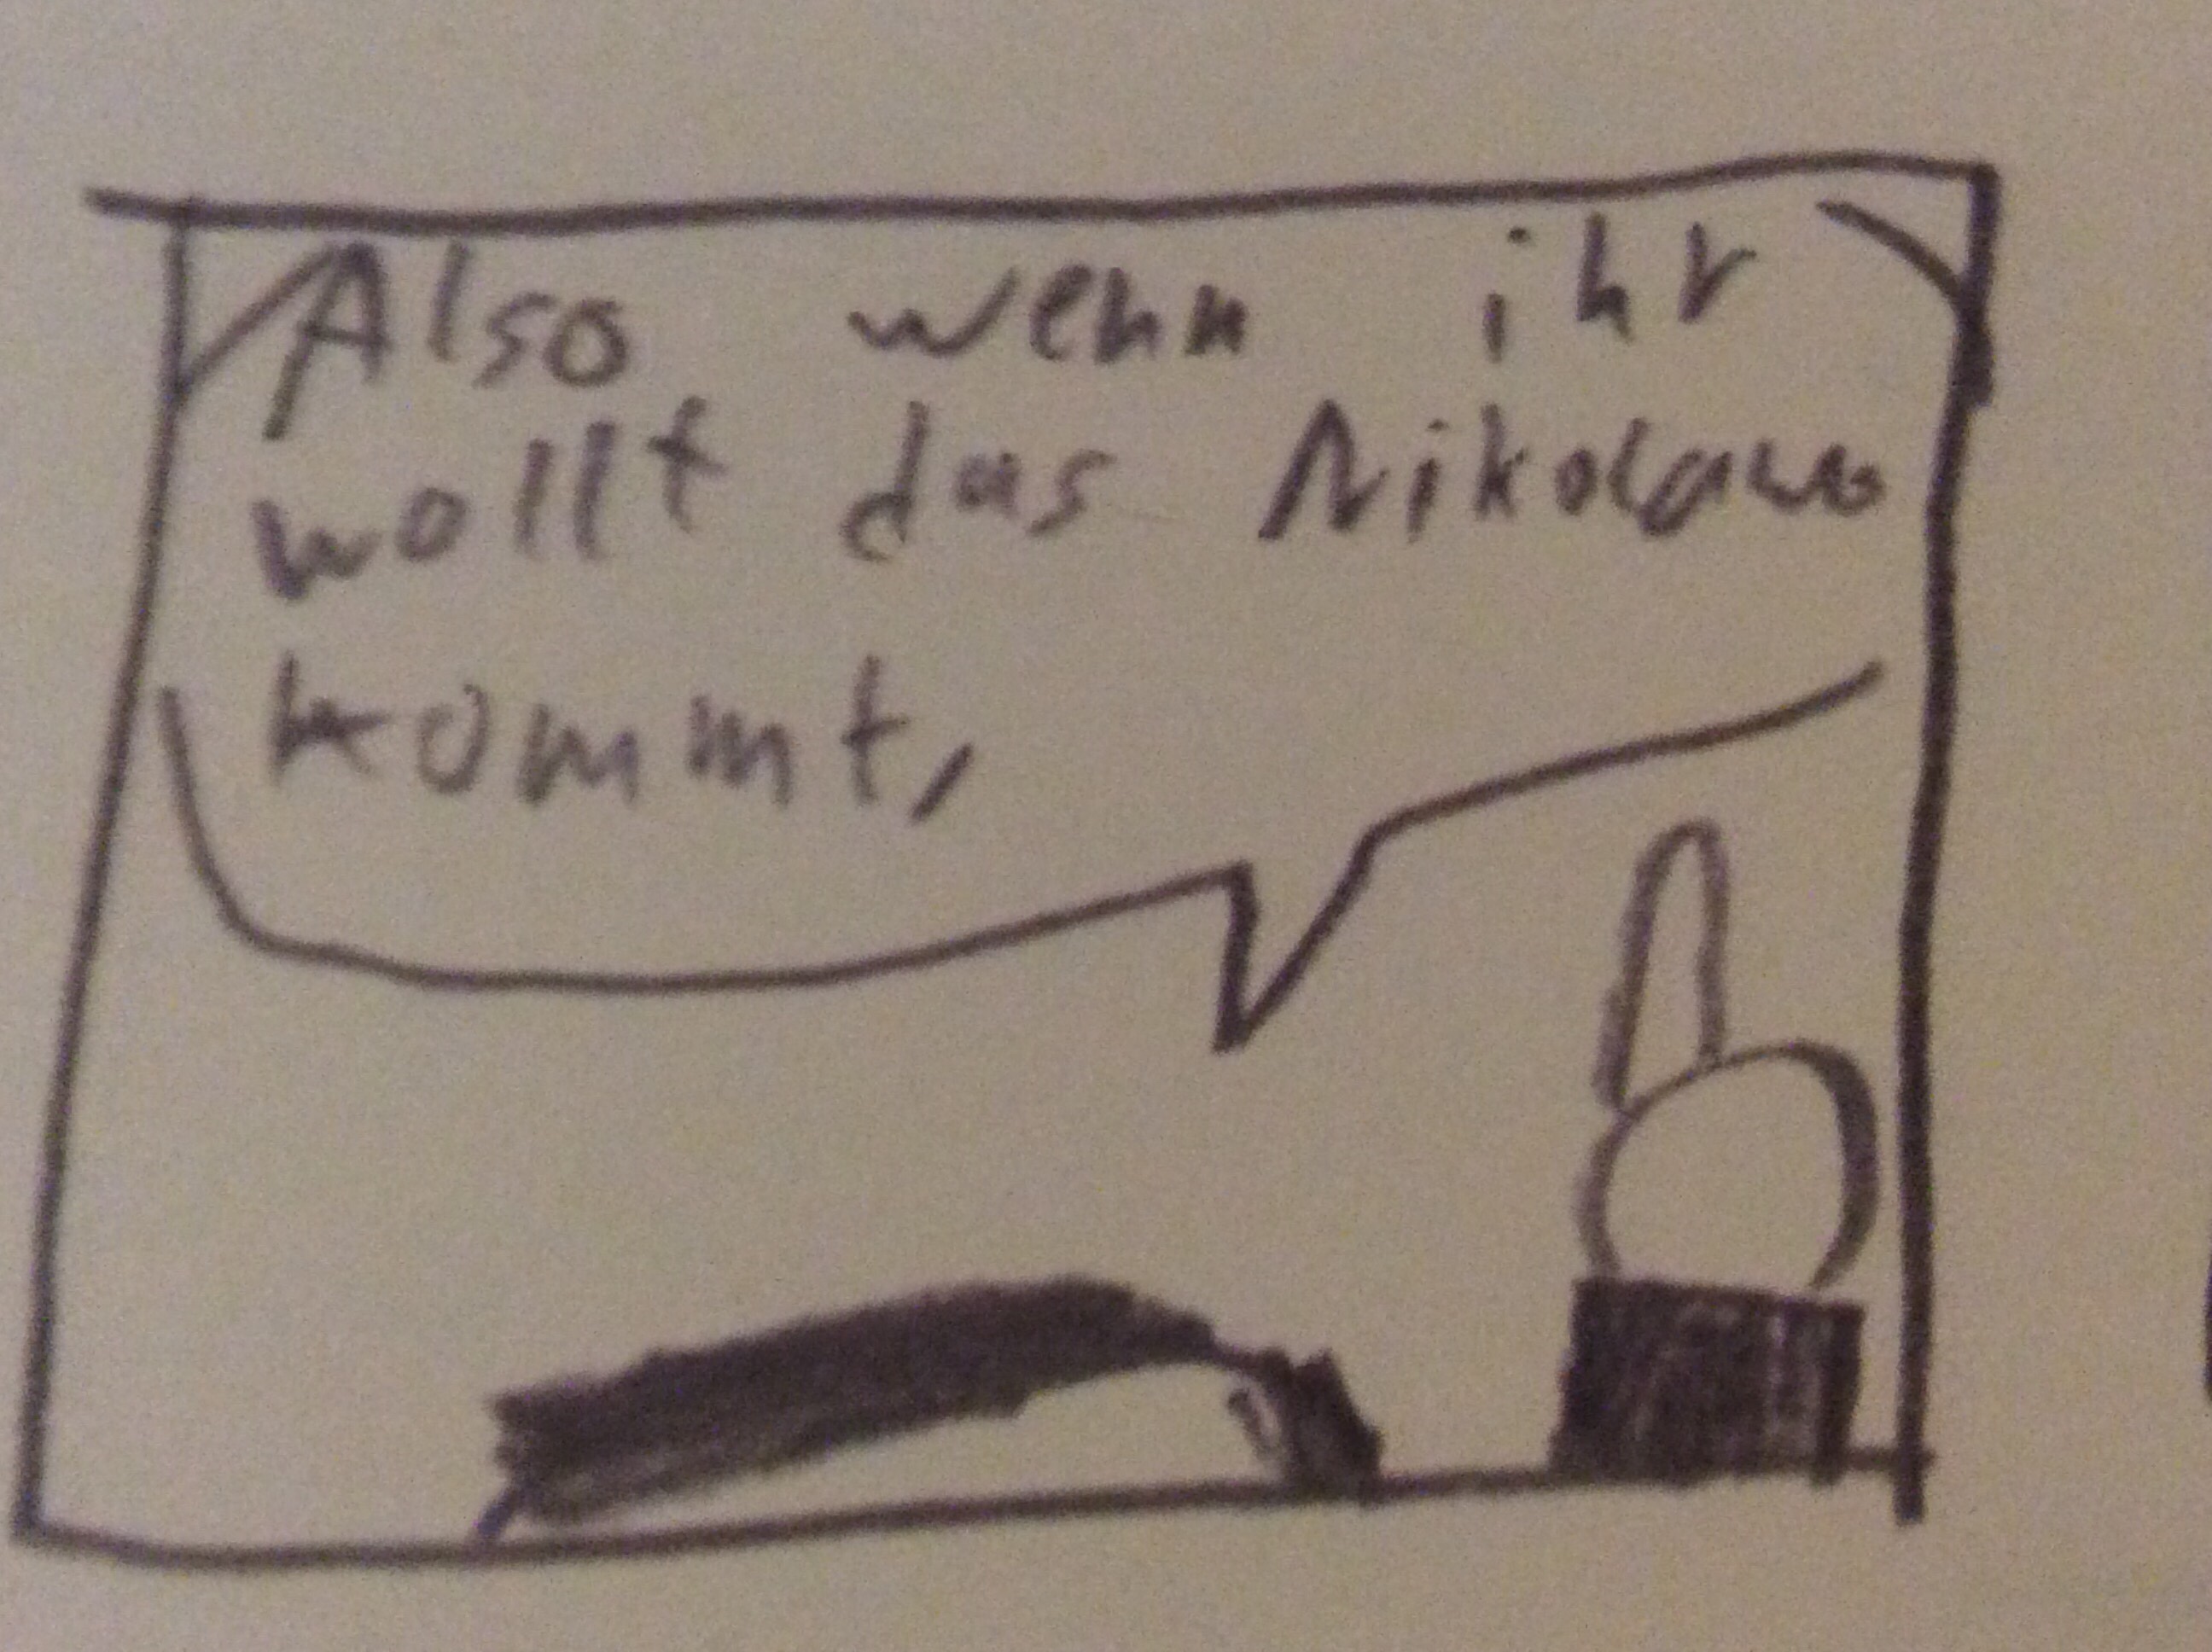 Also wenn ihr
wollt das Nikolaus
kommt,